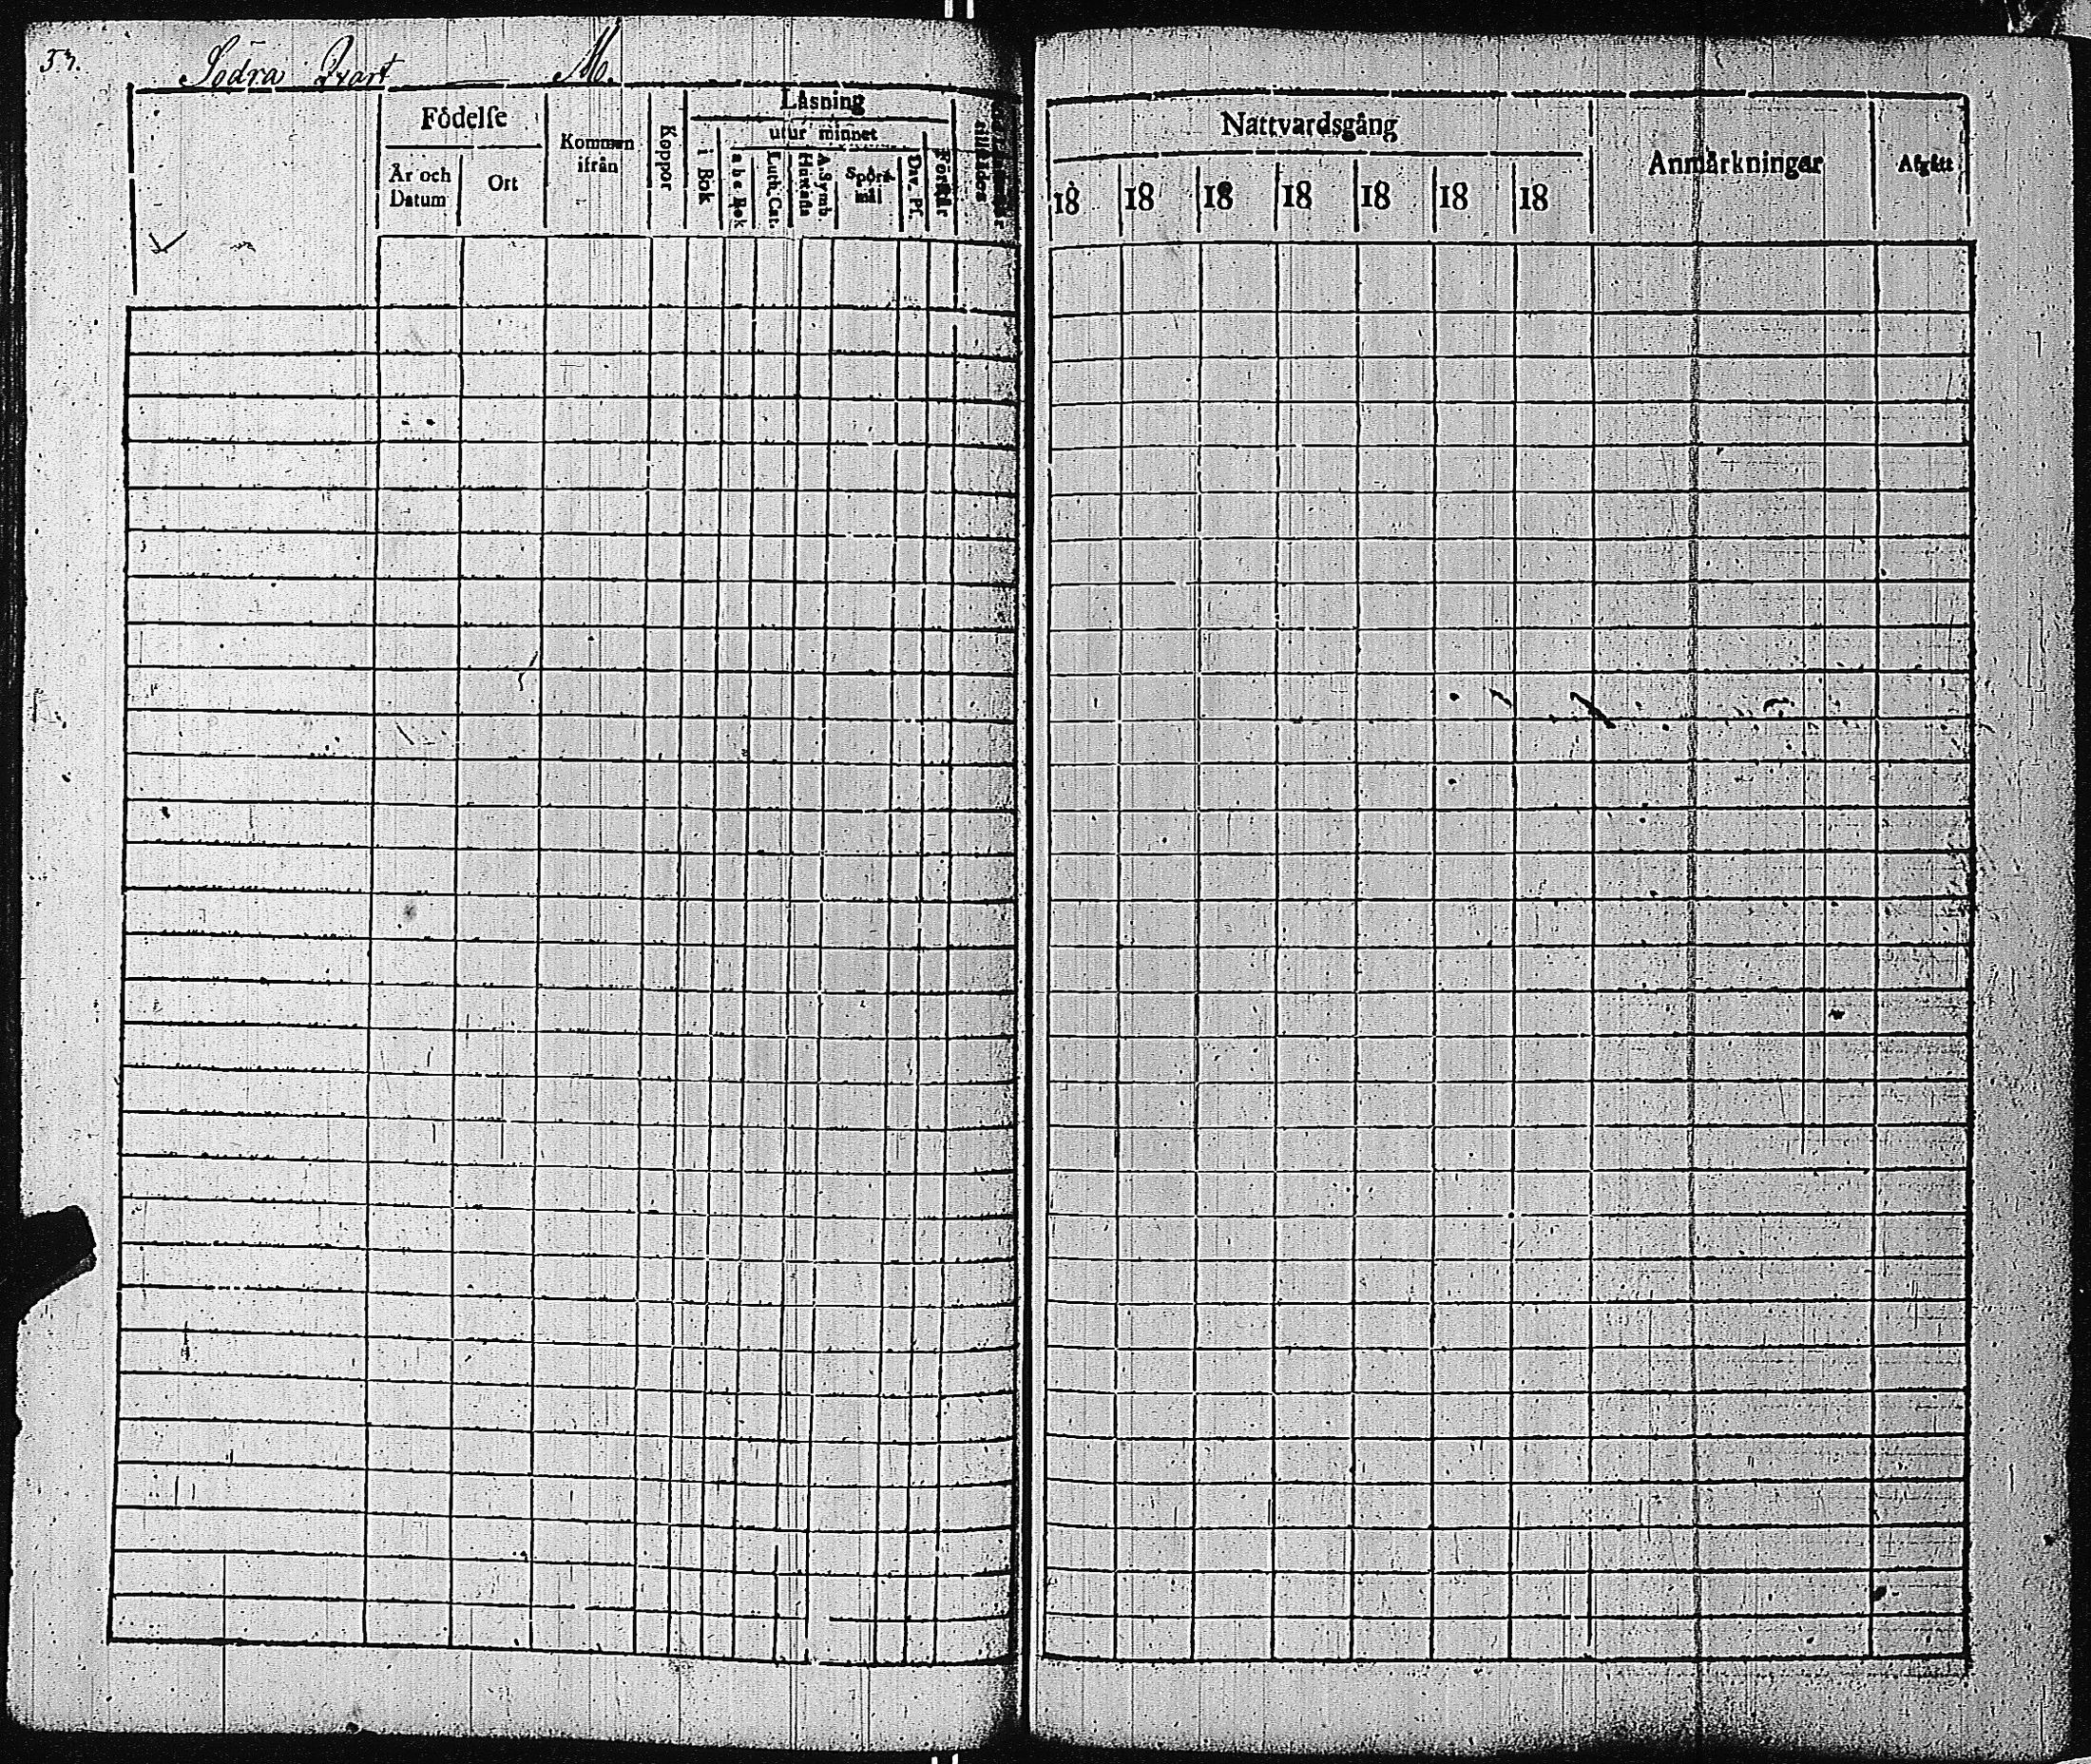 57.
Södra Qvart — M.
Födelse
År och Datum
Ort
Kommen ifrån
Koppor
Läsning
i Bok
utur minnet
a b c Bok
Luth. Cat.
A. Symb. Hustafla
Spörsmål
Dav. Ps.
Förstår
Nattvardsgång
18 18 18 18 18 18 18
Anmärkningar
Afgått